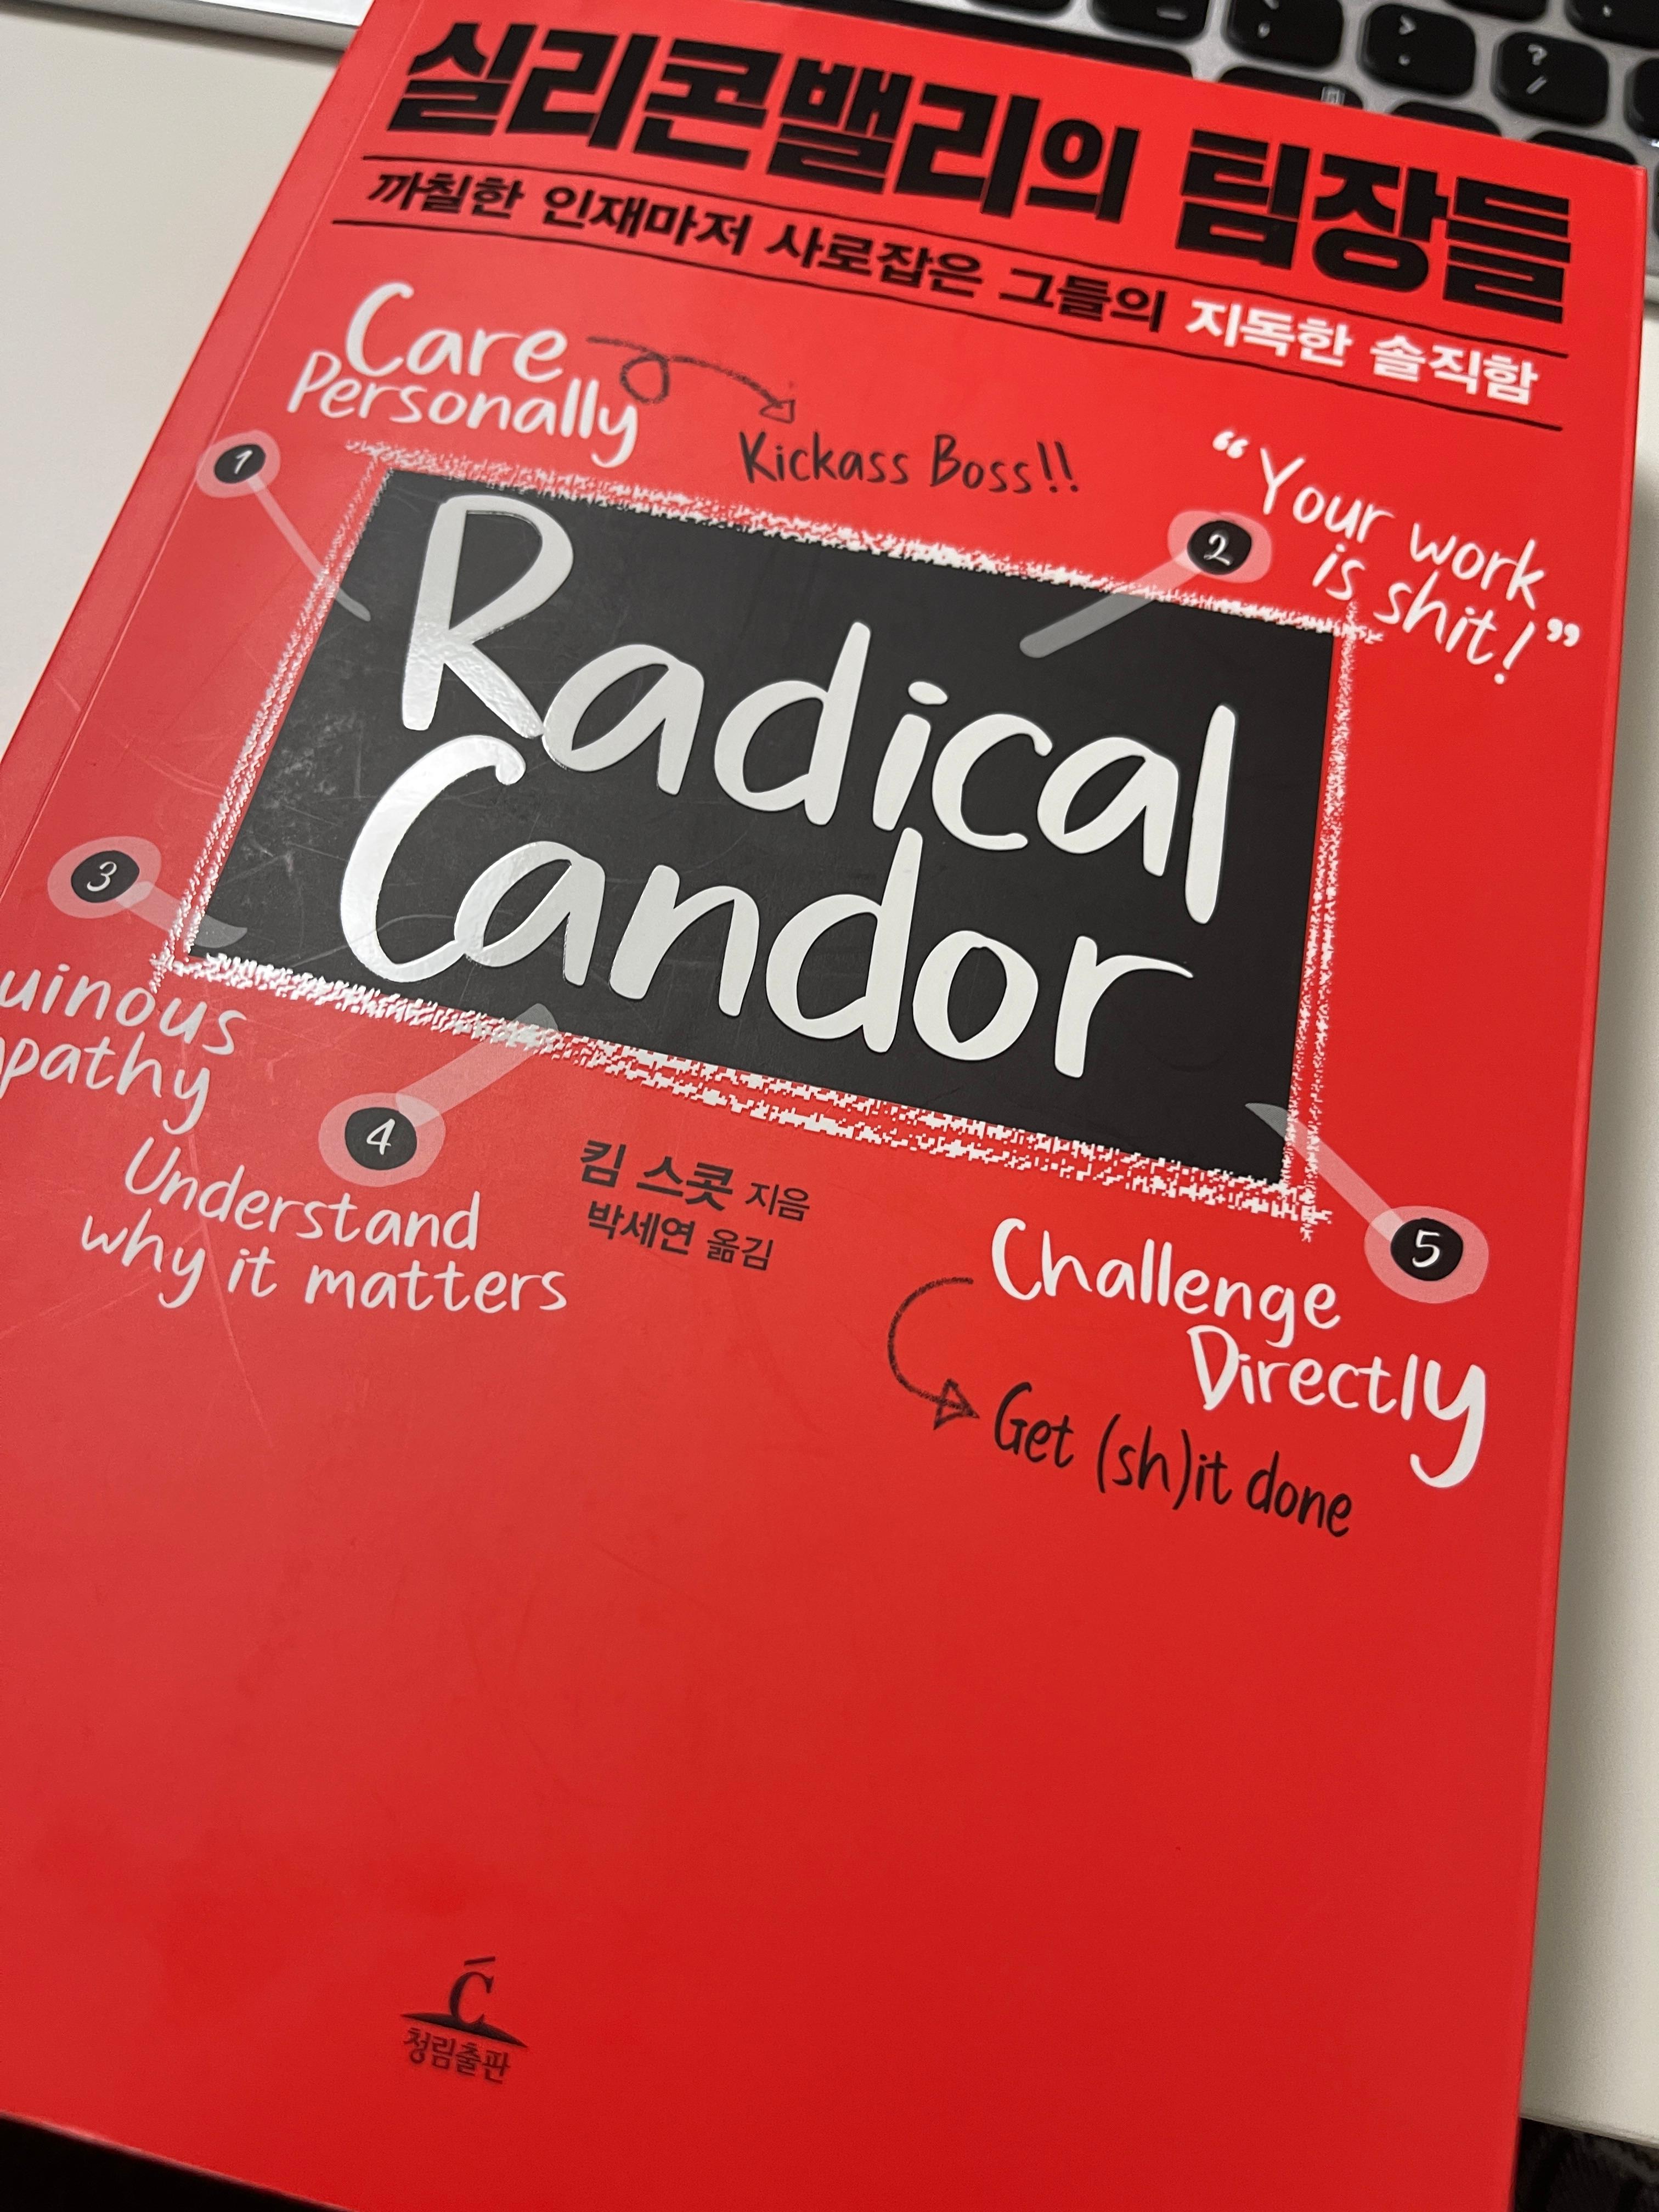 실리콘밸리의 팀장들
까칠한 인재마저 사로잡은 그들의 지독한 솔직함
Care
Personally
Kickass Boss!!
1
2
“Your work
is shit!”
Radical
Candor
3
uinous
pathy
4
Understand
why it matters
킴 스콧 지음
박세연 옮김
5
Challenge
Directly
Get (sh)it done
C
청림출판